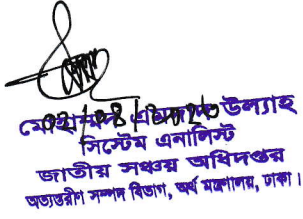 ০২/০৪/২০২০
মোহাম্মদ এমদাদ উল্যাহ
সিস্টেম এনালিস্ট
জাতীয় সঞ্চয় অধিদপ্তর
অভ্যন্তরীণ সম্পদ বিভাগ, অর্থ মন্ত্রণালয়, ঢাকা।